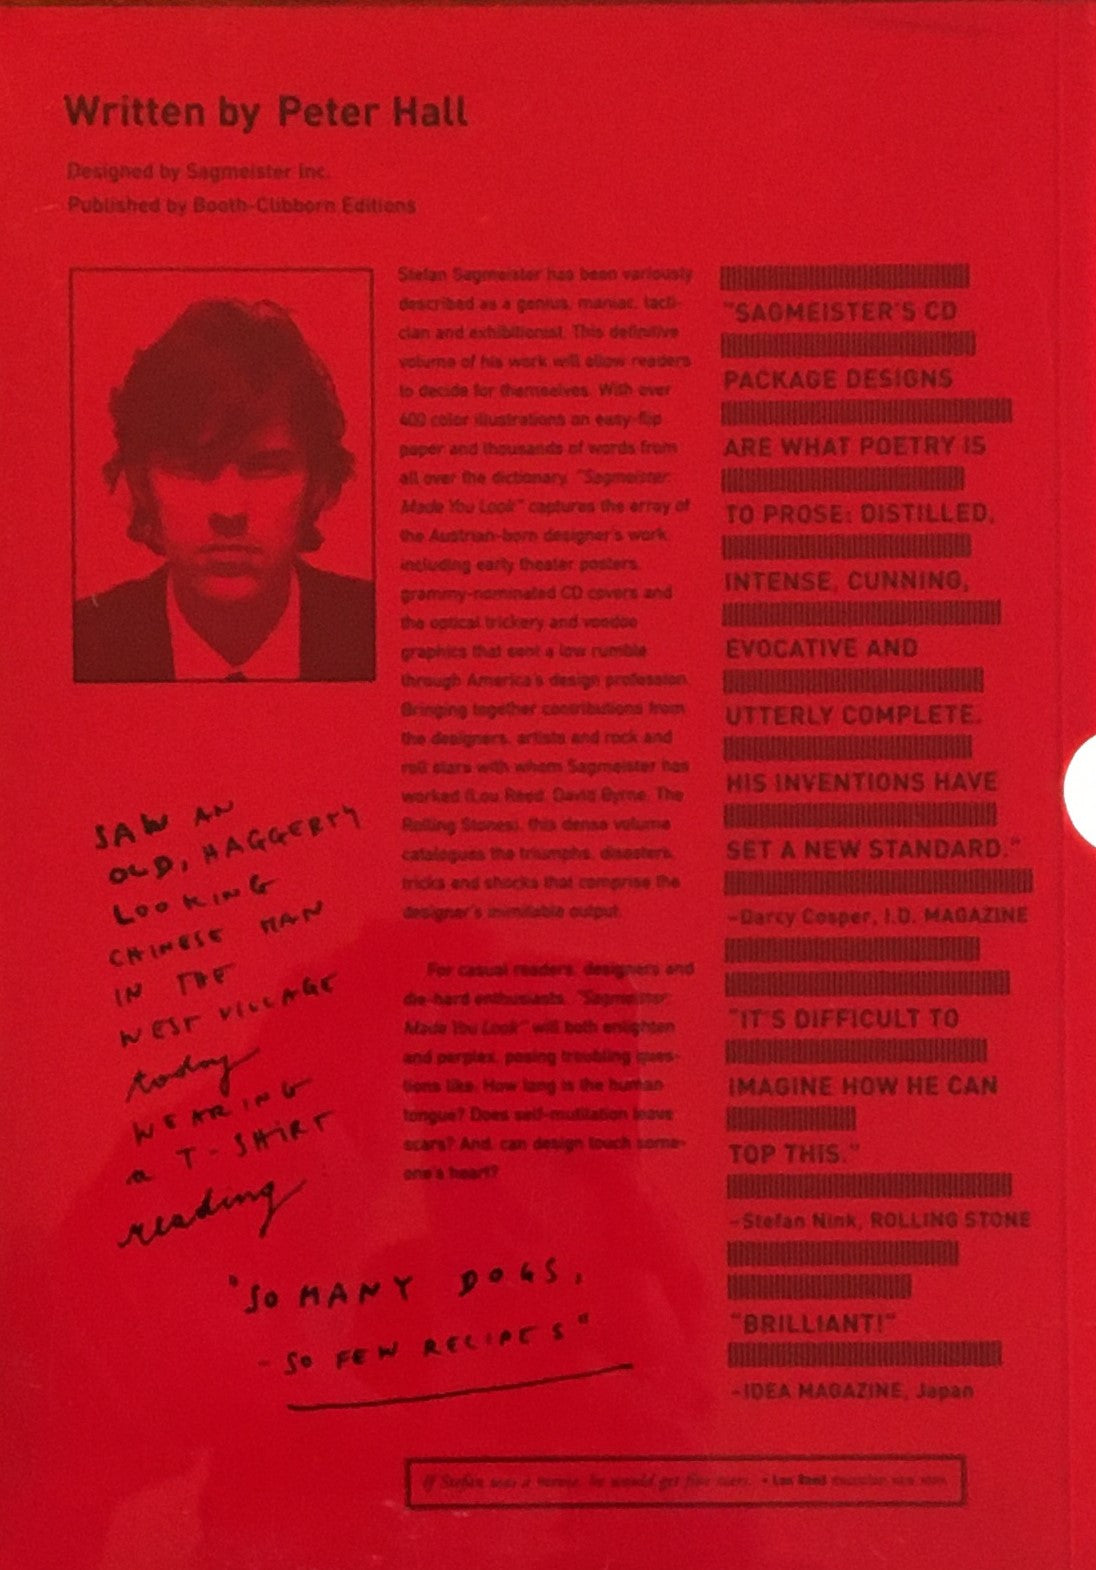 Written by Peter Hall
Designed by Sagmeister Inc.
Published by Booth-Clibborn Editions
Stefan Sagmeister has been variously
described as a genius, maniac, tacti-
cian and exhibitionist. This definitive
volume of his work will allow readers
to decide for themselves. With over
400 color illustrations on easy-flip
paper and thousands of words from
all over the dictionary, "Sagmeister:
Made You Look" captures the array of
the Austrian-born designer's work,
including early theater posters,
grammy-nominated CD covers and
the optical trickery and voodoo
graphics that sent a low rumble
through America's design profession.
Bringing together contributions from
the designers, artists and rock and
roll stars with whom Sagmeister has
worked (Lou Reed, David Byrne, The
Rolling Stones), this dense volume
catalogues the triumphs, disasters,
tricks and shocks that comprise the
designer's inimitable output.
For casual readers, designers and
die-hard enthusiasts, "Sagmeister:
Made You Look" will both enlighten
and perplex, posing troubling ques-
tions like: How long is the human
tongue? Does self-mutilation leave
scars? And, can design touch some-
one's heart?
"SAGMEISTER'S CD
PACKAGE DESIGNS
ARE WHAT POETRY IS
TO PROSE: DISTILLED,
INTENSE, CUNNING,
EVOCATIVE AND
UTTERLY COMPLETE.
HIS INVENTIONS HAVE
SET A NEW STANDARD."
–Darcy Cosper, I.D. MAGAZINE
"IT'S DIFFICULT TO
IMAGINE HOW HE CAN
TOP THIS."
–Stefan Nink, ROLLING STONE
"BRILLIANT!"
–IDEA MAGAZINE, Japan
SAW AN
OLD, HAGGERTY
LOOKING
CHINESE MAN
IN THE
WEST VILLAGE
today
WEARING
a T-SHIRT
reading
"SO MANY DOGS,
- SO FEW RECIPES"
If Stefan was a movie, he would get five stars. • Lou Reed